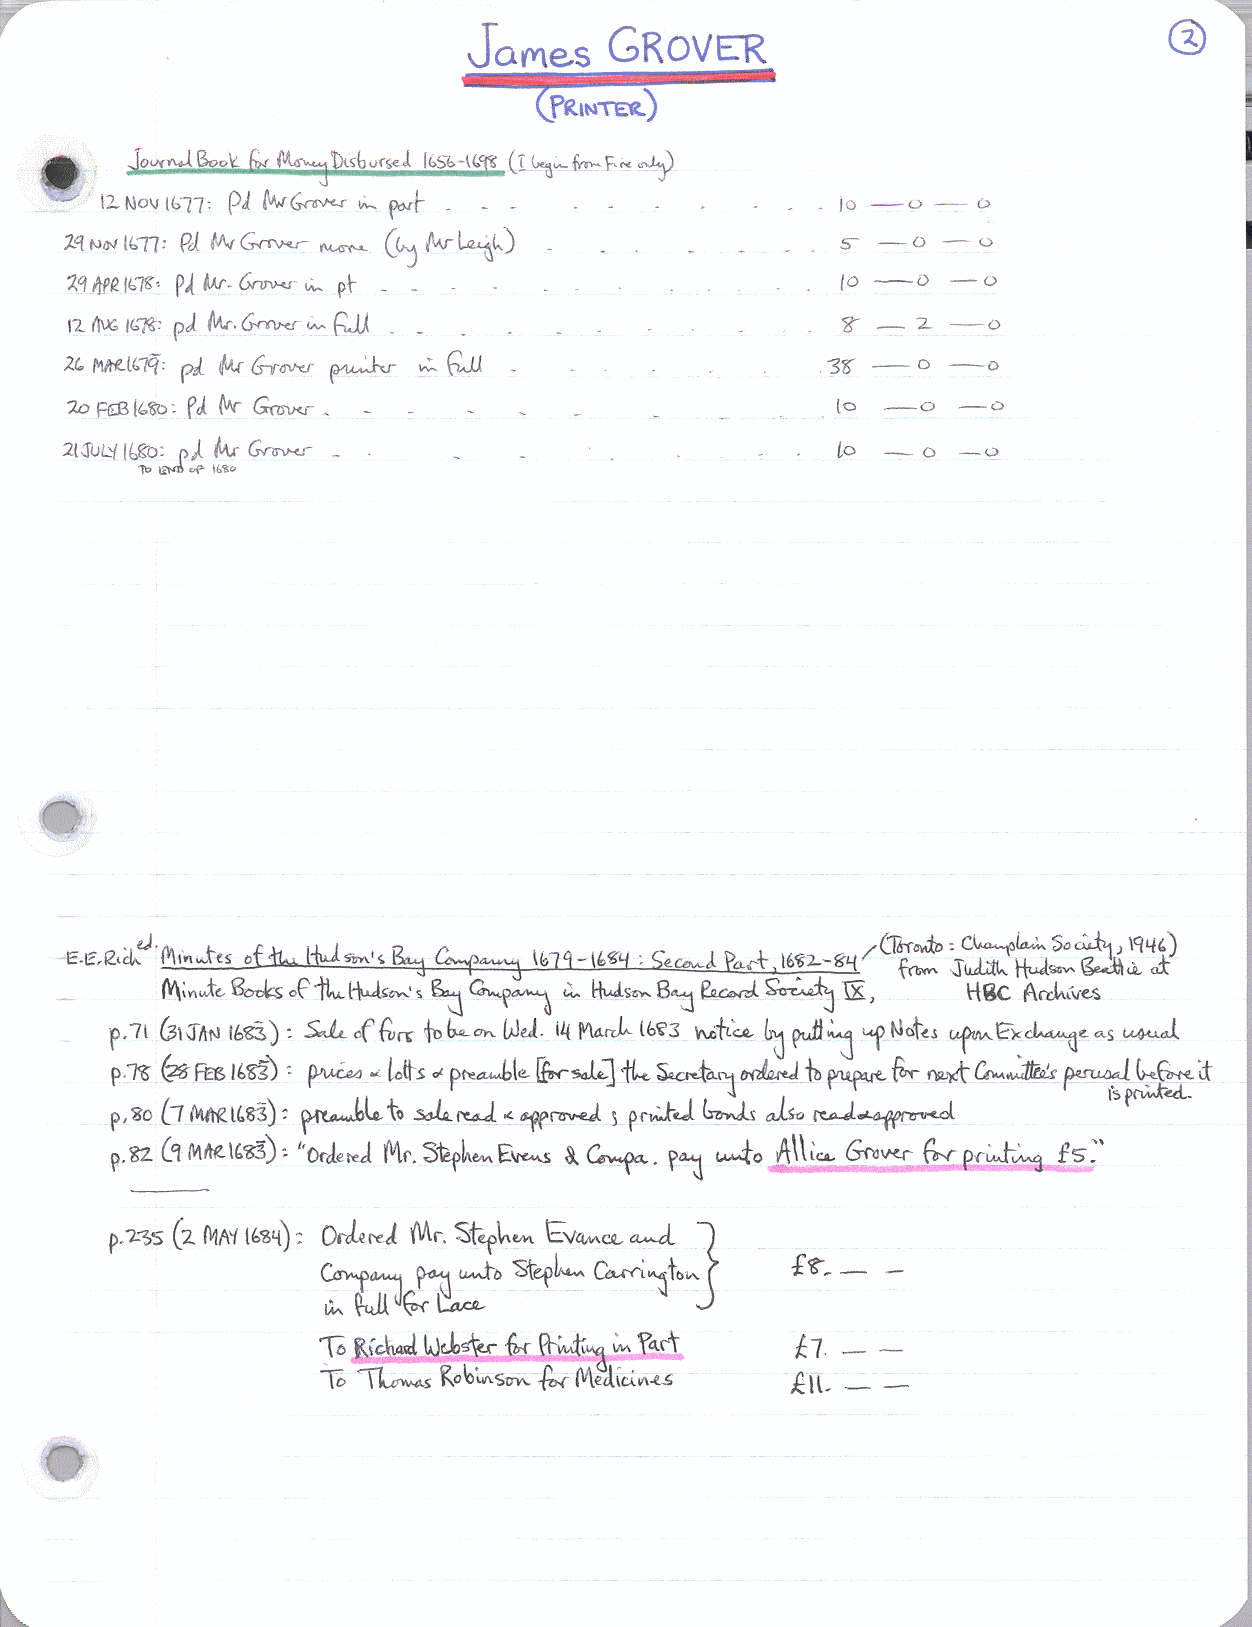 2
James GROVER
(PRINTER)
Journal Book for Money Disbursed 1656-1698 (I begin from Fire only)
12 NOV 1677: Pd Mr Grover in part . - - - - - - - . 10 — 0 — 0
29 NOV 1677: Pd Mr Grover more (by Mr Leigh) . . . . . . 5 — 0 — 0
29 APR 1678: Pd Mr. Grover in pt - - . - . . . . . . 10 — 0 — 0
12 AUG 1678: pd Mr. Grover in full . - - . - . . . . . 8 — 2 — 0
26 MAR 1679: pd Mr Grover printer in full . . . . . . 38 — 0 — 0
20 FEB 1680: Pd Mr Grover . - - - - - - . . 10 — 0 — 0
21 JULY 1680: pd Mr Grover - . - - - - . . 10 — 0 — 0
TO END OF 1680
E.E. Rich ed. Minutes of the Hudson's Bay Company 1679-1684: Second Part, 1682-84 (Toronto: Champlain Society, 1946)
from Judith Hudson Beattie at
Minute Books of the Hudson's Bay Company in Hudson Bay Record Society IX, HBC Archives
p.71 (31 JAN 1683): Sale of furs to be on Wed. 14 March 1683 notice by putting up Notes upon Exchange as usual
p.78 (28 FEB 1683): prices & lotts & preamble [for sale] the Secretary ordered to prepare for next Committee's perusal before it
is printed.
p.80 (7 MAR 1683): preamble to sale read & approved; printed bonds also read & approved
p.82 (9 MAR 1683): "Ordered Mr. Stephen Evens & Compa. pay unto Allice Grover for printing £5."
p.235 (2 MAY 1684): Ordered Mr. Stephen Evance and
Company pay unto Stephen Carrington £8. — —
in full for Lace
To Richard Webster for Printing in Part £7. — —
To Thomas Robinson for Medicines £11. — —